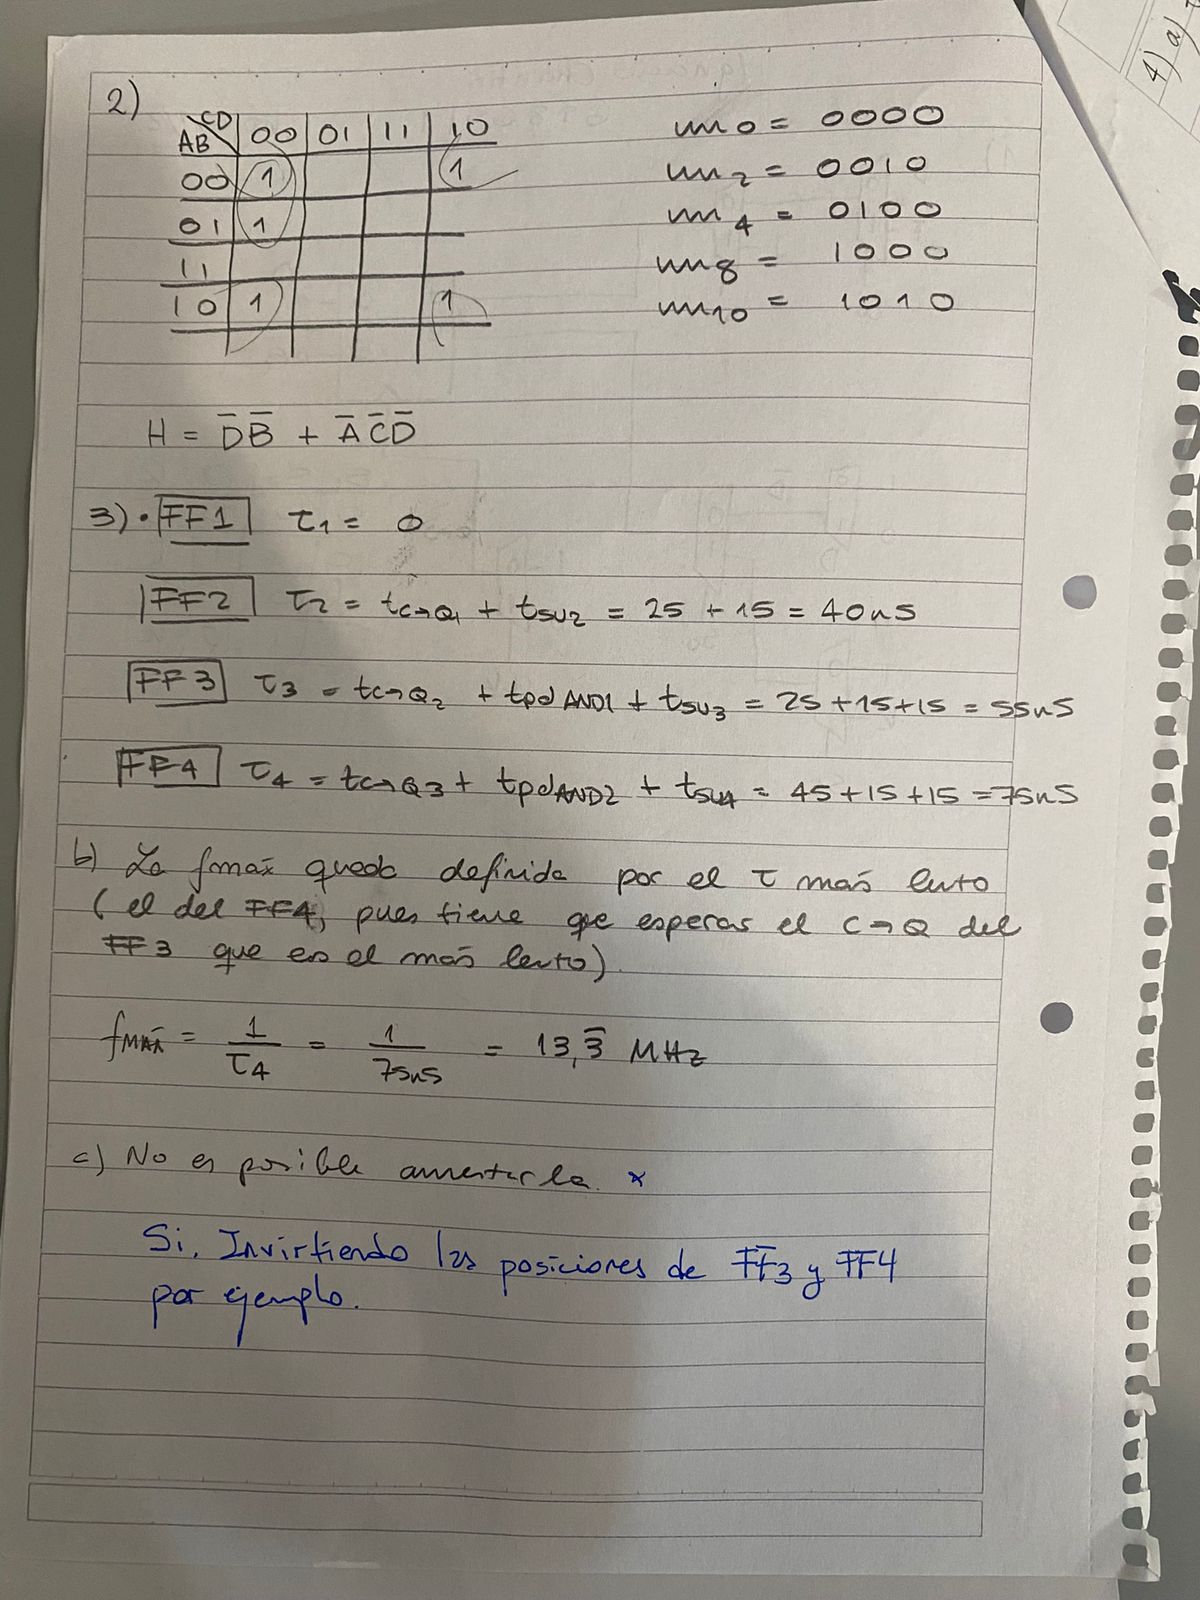 2)
CD
AB 00 01 11 10
00 1 1
01 1
11
10 1 1
m0 = 0000
m2 = 0010
m4 = 0100
m8 = 1000
m10 = 1010
H = D̅B̅ + A̅C̅D̅
3) • FF1 τ1 = 0
FF2 τ2 = tC→Q1 + tSU2 = 25 + 15 = 40nS
FF3 τ3 = tC→Q2 + tpdAND1 + tSU3 = 25+15+15 = 55nS
FF4 τ4 = tC→Q3 + tpdAND2 + tSU4 = 45+15+15 = 75nS
b) La fmáx queda definida por el τ más lento
(el del FF4, pues tiene que esperar el C→Q del
FF3 que es el más lento)
fMÁX = 1/τ4 = 1/75nS = 13,3̅ MHz
c) No es posible aumentarla. x
Si. Invirtiendo las posiciones de FF3 y FF4
por ejemplo.
4) a)